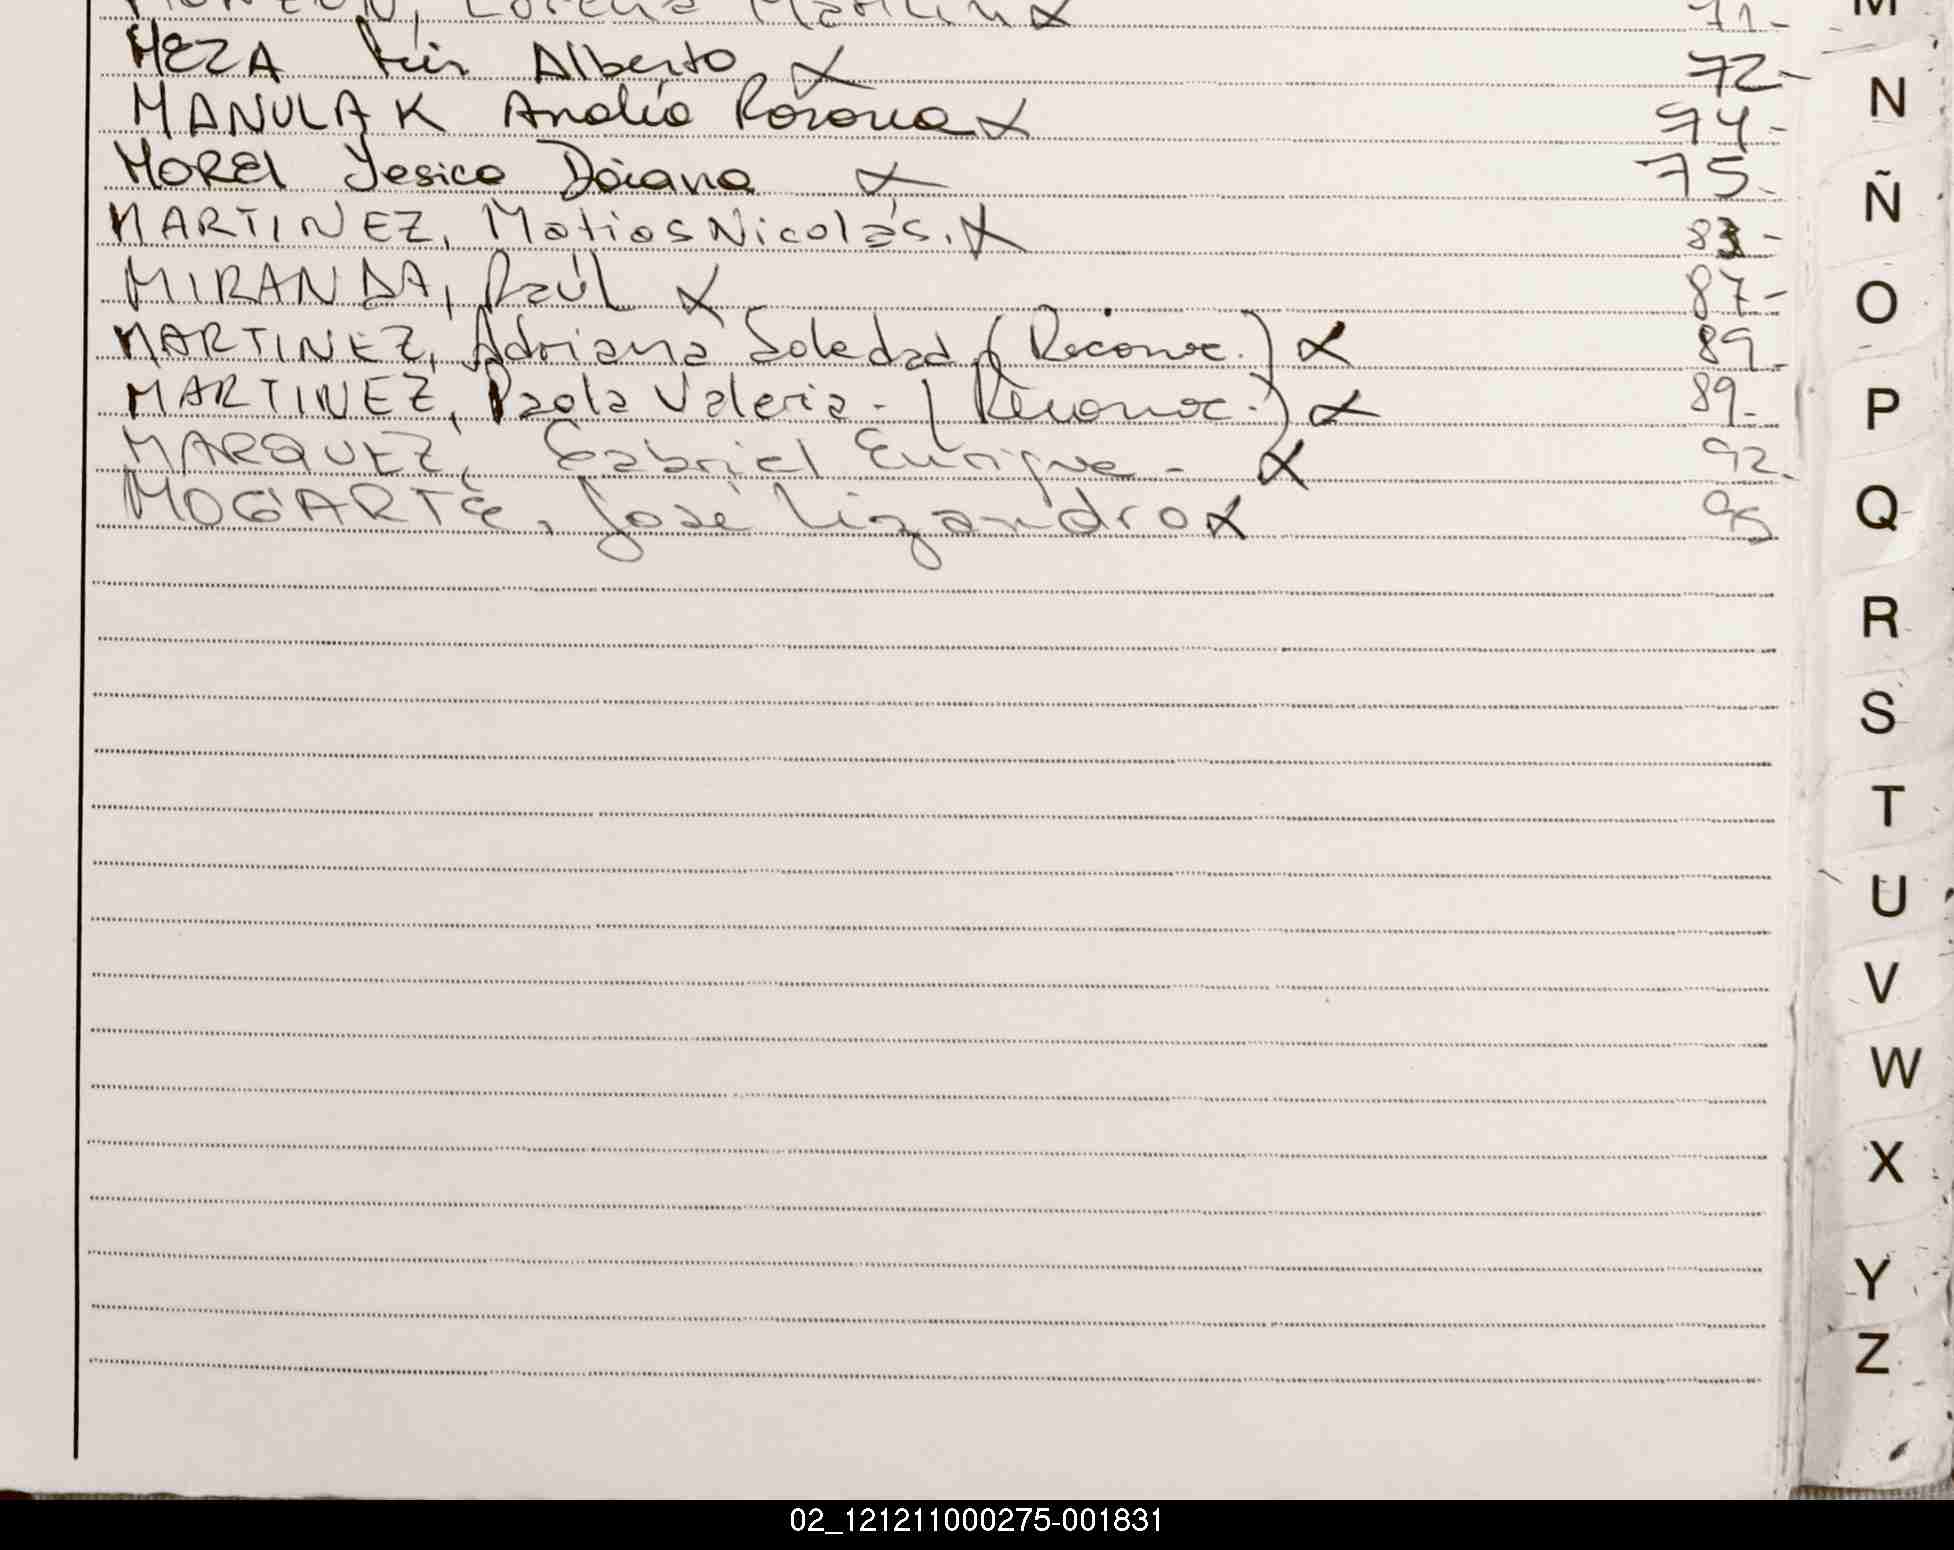 MONZON, Lorena Marilin X 71-
MEZA Luis Alberto X 72-
MANULAK Analía Rosana X 94-
MOREL Yesica Daiana X 75-
MARTINEZ, Matias Nicolás. X 83-
MIRANDA, Raúl X 87-
MARTINEZ, Adriana Soledad (Reconoc.) X 89-
MARTINEZ, Paola Valeria - (Reconoc.) X 89-
MARQUEZ, Gabriel Enrique - X 92-
MOGARTE, José Lizandro X 95
M
N
Ñ
O
P
Q
R
S
T
U
V
W
X
Y
Z
02_121211000275-001831